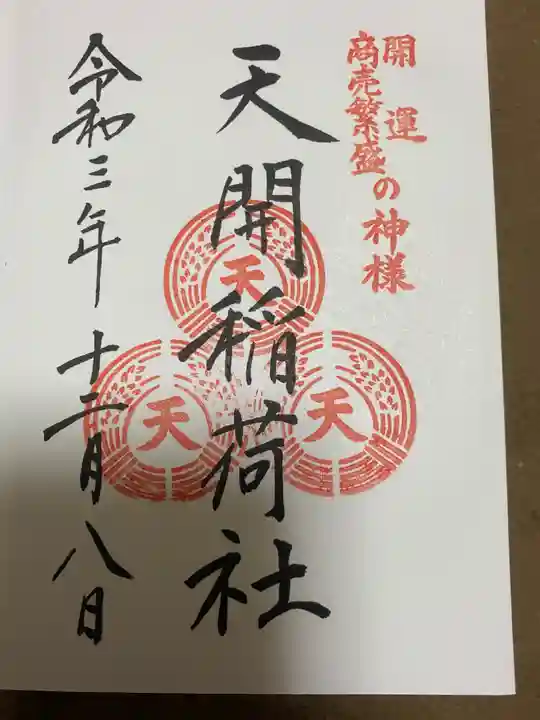 開運
商売繁盛
の神様
天開稲荷社
天
天
天
令和三年十二月八日